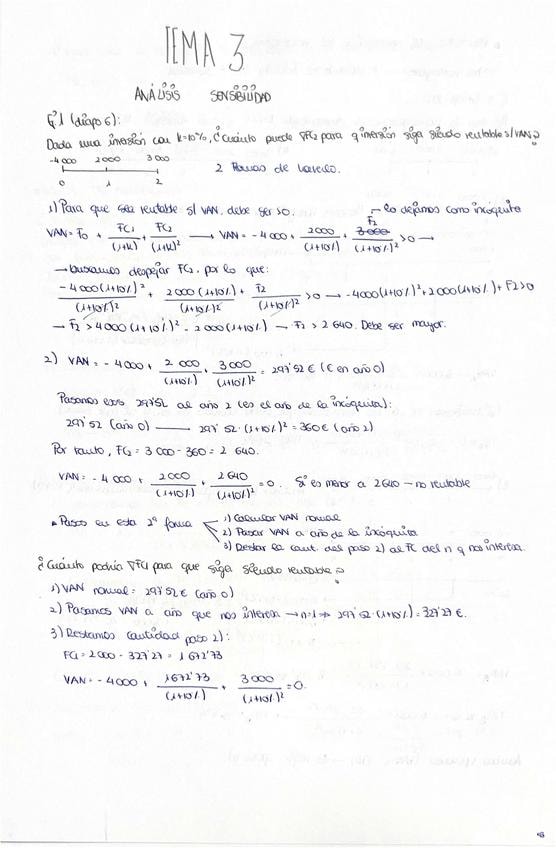 TEMA 3
ANÁLISIS SENSIBILIDAD
Ej 1 (diapo 6):
Dada una inversión con k=10%, ¿cuánto puede ∇FC2 para q inversión siga siendo rentable s/VAN?
-4000 2000 3000
0 1 2
2 formas de hacerlo.
1) Para que sea rentable s/ VAN, debe ser >0. → lo dejamos como incógnita
VAN = F0 + FC1/(1+k) + FC2/(1+k)² → VAN = -4000 + 2000/(1+10%) + F2 3000/(1+10%)² >0 →
→ buscamos despejar FC2, por lo que:
-4000(1+10%)²/(1+10%)² + 2000(1+10%)/(1+10%)² + F2/(1+10%)² >0 → -4000(1+10%)² + 2000(1+10%) + F2 >0
→ F2 > 4000(1+10%)² - 2000(1+10%) → F2 > 2640. Debe ser mayor.
2) VAN = -4000 + 2000/(1+10%) + 3000/(1+10%)² = 297'52 € (€ en año 0)
Pasamos esos 297'52 al año 2 (es el año de la incógnita):
297'52 (año 0) → 297'52·(1+10%)² = 360€ (año 2)
Por tanto, FC2 = 3000 - 360 = 2640.
VAN = -4000 + 2000/(1+10%) + 2640/(1+10%)² = 0. Si es menor a 2640 → no rentable
• Pasos en esta 2ª forma
1) Calcular VAN normal
2) Pasar VAN a año de la incógnita
3) Restar la cant. del paso 2) al FC del n q nos interesa.
¿Cuánto podría ∇FC1 para que siga siendo rentable?
1) VAN normal = 297'52 € (año 0)
2) Pasamos VAN a año que nos interesa → n=1 → 297'52·(1+10%) = 327'27 €.
3) Restamos cantidad paso 2):
FC1 = 2000 - 327'27 = 1672'73
VAN = -4000 + 1672'73/(1+10%) + 3000/(1+10%)² = 0.